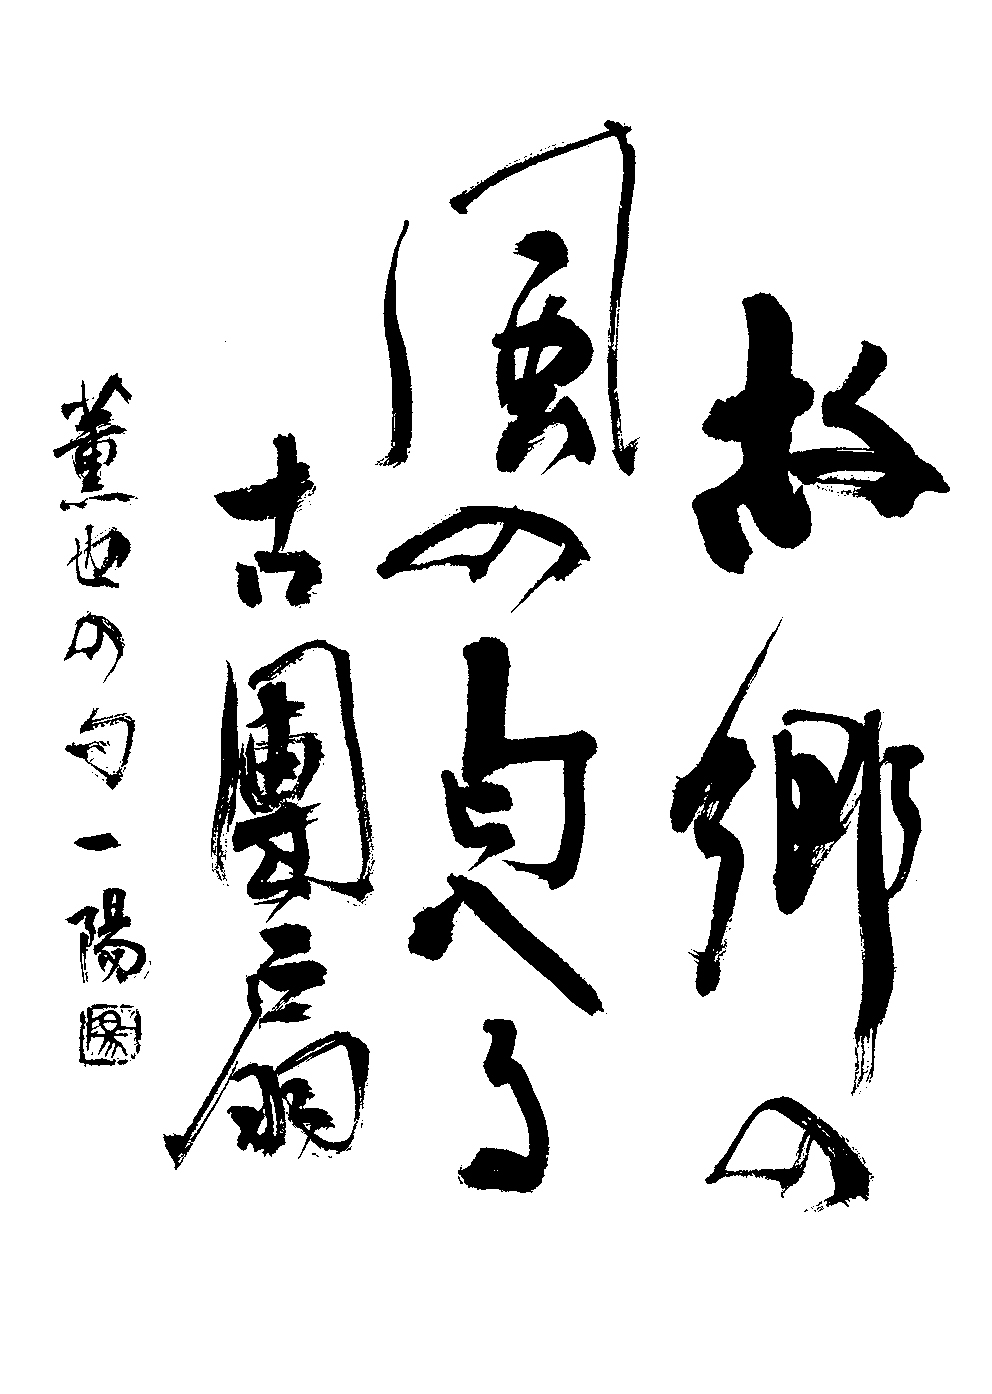 故郷の
風の匂へる
古團扇
薫也の句一陽